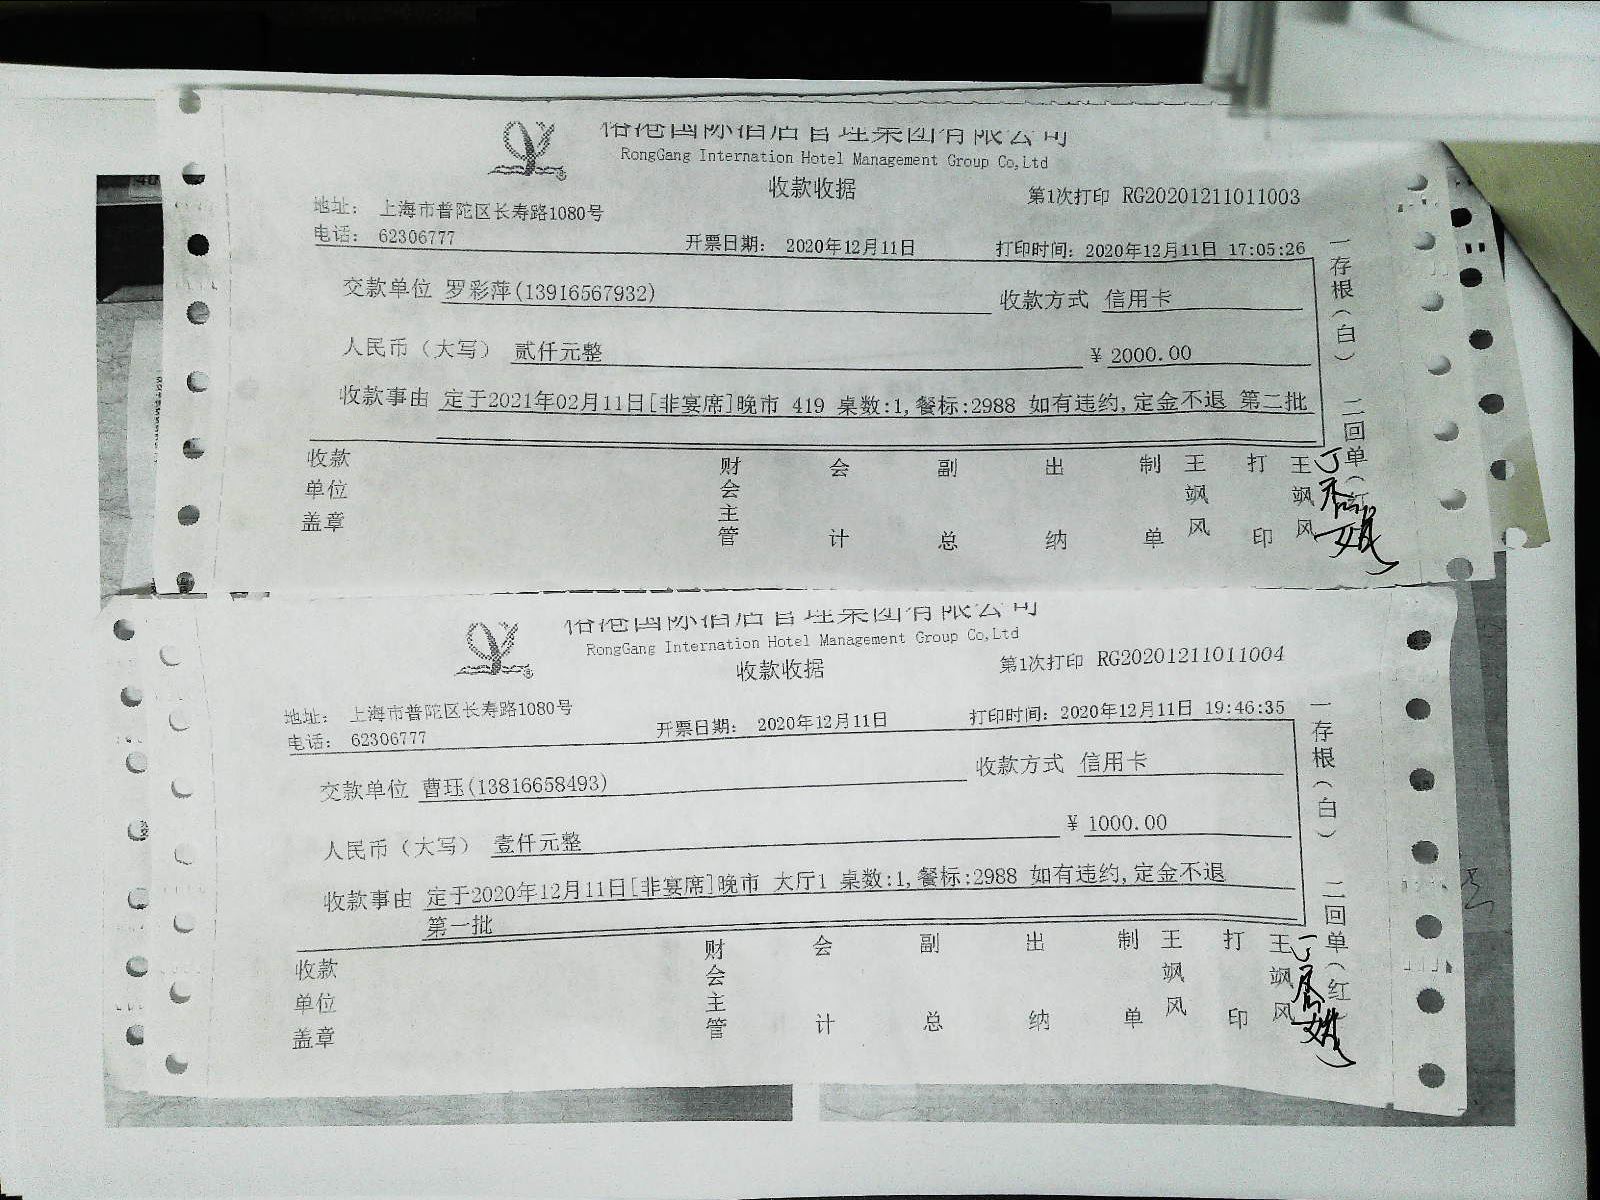 榕港国际酒店管理集团有限公司
RongGang Internation Hotel Management Group Co,Ltd
收款收据
第1次打印 RG20201211011003
地址: 上海市普陀区长寿路1080号
电话: 62306777
开票日期: 2020年12月11日
打印时间: 2020年12月11日 17:05:26
交款单位 罗彩萍(13916567932)
收款方式 信用卡
人民币（大写） 贰仟元整
¥ 2000.00
收款事由 定于2021年02月11日[非宴席]晚市 419 桌数:1,餐标:2988 如有违约,定金不退 第二批
收款单位盖章
财会主管
会计
副总
出纳
制单
王飒风
打印
王飒风
一存根（白） 二回单（红
榕港国际酒店管理集团有限公司
RongGang Internation Hotel Management Group Co,Ltd
收款收据
第1次打印 RG20201211011004
地址: 上海市普陀区长寿路1080号
电话: 62306777
开票日期: 2020年12月11日
打印时间: 2020年12月11日 19:46:35
交款单位 曹珏(13816658493)
收款方式 信用卡
人民币（大写） 壹仟元整
¥ 1000.00
收款事由 定于2020年12月11日[非宴席]晚市 大厅1 桌数:1,餐标:2988 如有违约,定金不退
第一批
收款单位盖章
财会主管
会计
副总
出纳
制单
王飒风
打印
王飒风
一存根（白） 二回单（红